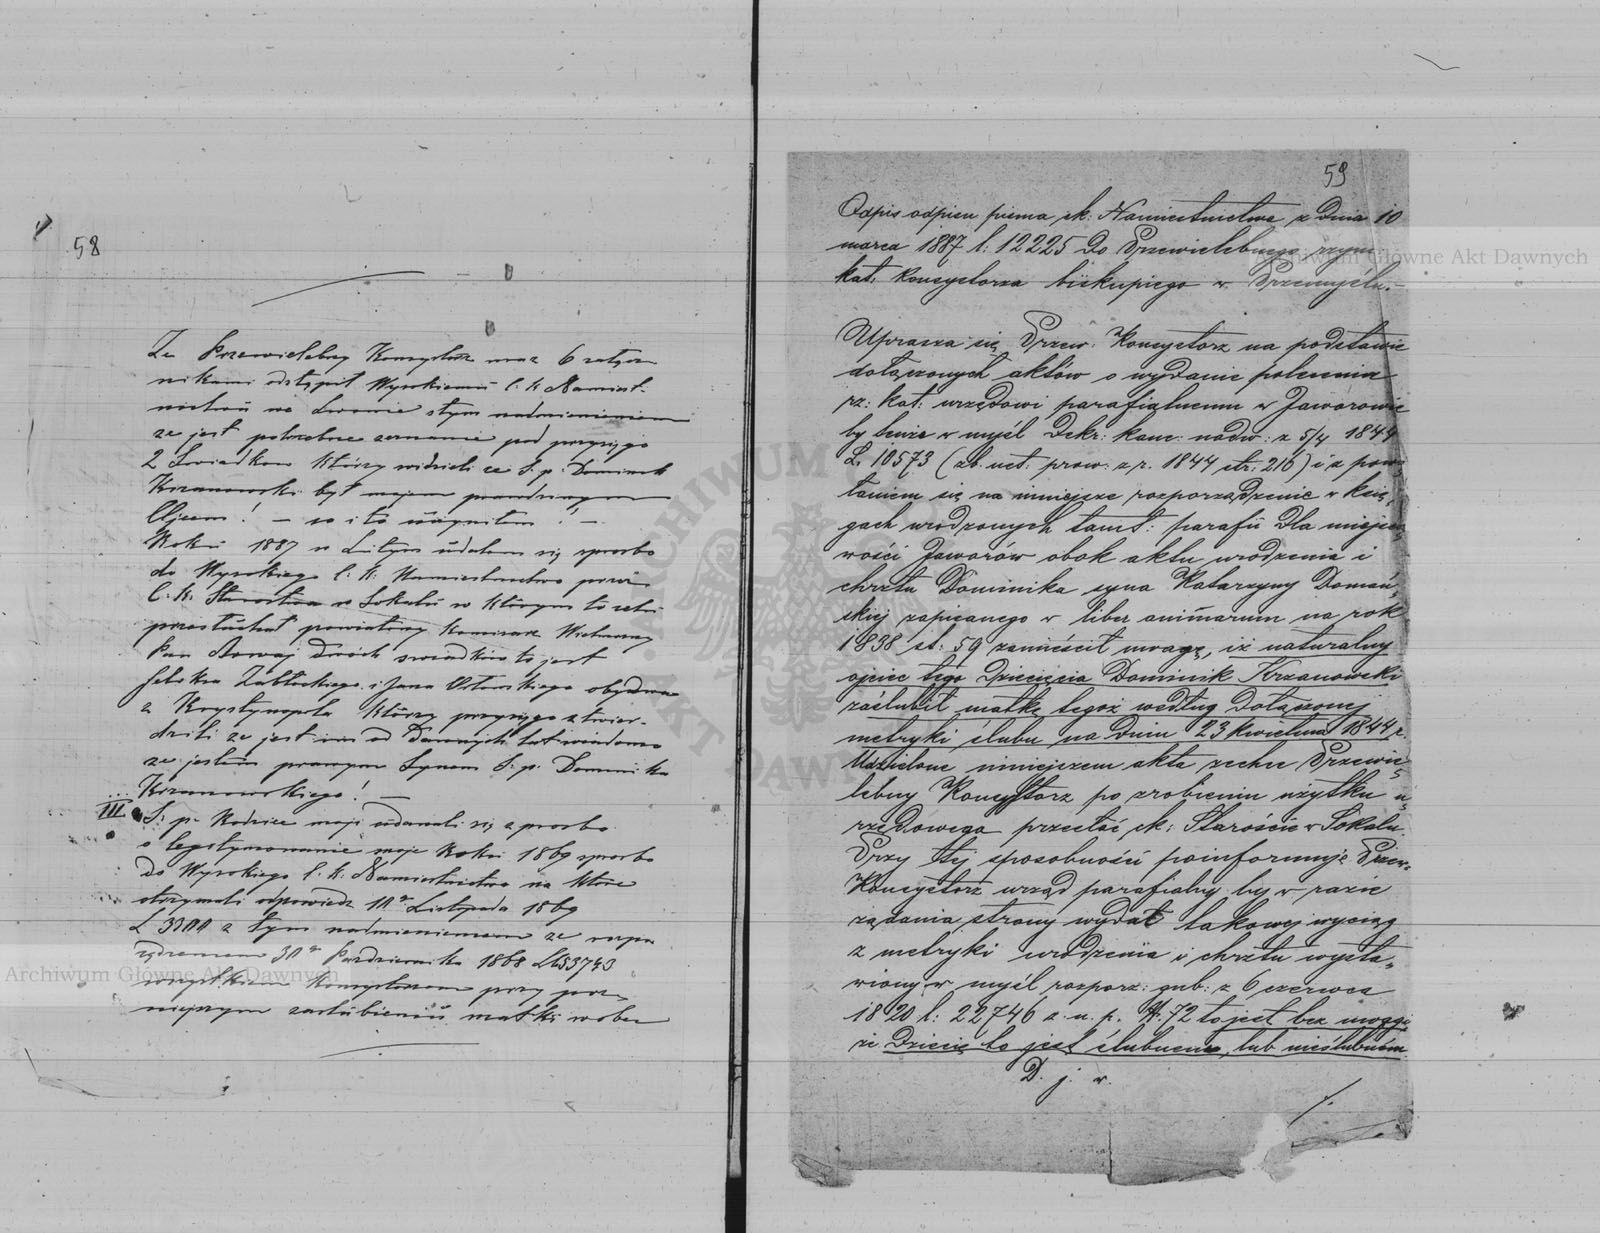 58
Że Przewielebny Konsystorz wraz 6 załącz
nikami odstąpił Wysokiemu C. k. Namiest-
nictwu we Lwowie z tym nadmienieniem
że jest potrzebne zeznanie pod przysięgą
2 Świadków którzy widzieli że Ś. p. Dominik
Krzanowski był mojem prawdziwym
Ojcem! — co i to uczyniłem! —
Roku 1887 w Lutym udałem się z prośbą
do Wysokiego C. K. Namiestnictwa przez
C. K. Starostwo w Sokalu w którym to celu
przesłuchał powiatowy Komisarz Wielmożny
Pan dwóch świadków to jest
Zabłockiego i Jana obydwa
z Krystynopola którzy przysięgą stwier-
dzili że jest im od dawnych lat wiadomo
że jestem prawym Synem Ś. p. Dominika
Krzanowskiego! —
III Ś. p. Rodzice moji udawali się z prośbą
o legitymowanie moje Roku 1869 z prośbą
do Wysokiego C. k. Namiestnictwa na które
otrzymali odpowiedź Listopada 1869
z tym nadmienieniem że rozpo
rządzeniem Października 1868
wszystkiem Konsystorzom przy
zaślubieniu matki wobec
59
Odpis odpisu pisma ck: Namiestnictwa z dnia 10
marca 1887 l: 12225 do Przewielebnego rzym:
kat: Konsystorza biskupiego w Przemyślu.—
Uprasza się Przew: Konsystorz na podstawie
dołączonych aktów o wydanie polecenia
rz: kat: urzędowi parafialnemu w Jaworowie
by tenże w myśl Dekr: kanc: nadw: z 5/4 1844
L. 10573 (zb. ust: prow: z r. 1844 str: 216) i z powo
łaniem się na niniejsze rozporządzenie w księ„
gach urodzonych tamt: parafii dla miejsco„
wości Jaworów obok aktu urodzenia i
chrztu Dominika syna Katarzyny Domań„
skiej zapisanego w liber animarum na rok
1838 st: 59 zamieścił uwagę, iż naturalny
ojciec tego dziecięcia Dominik Krzanowski
zaślubił matkę tegoż według dołączonej
metryki ślubu na dniu 23 kwietnia 1844 r.
Udzielone niniejszem akta zechce Przewie„
lebny Konsystorz po zrobieniu użytku u„
rzędowego przesłać ck: Staroście w Sokalu.
Przy tej sposobności poinformuje Przew.
Konsystorz urząd parafialny by w razie
żądania strony wydał takowej wyciąg
z metryki urodzenia i chrztu wysta„
wiony w myśl rozporz: gub: z 6 czerwca
1820 l: 22746 z. u. p. N. 72 to jest bez uwagi
że dziecię to jest ślubnem, lub nieślubnem.
D. j. w.
Archiwum Główne Akt Dawnych
Archiwum Główne Akt Dawnych
ARCHIWUM AKT DAWNYCH